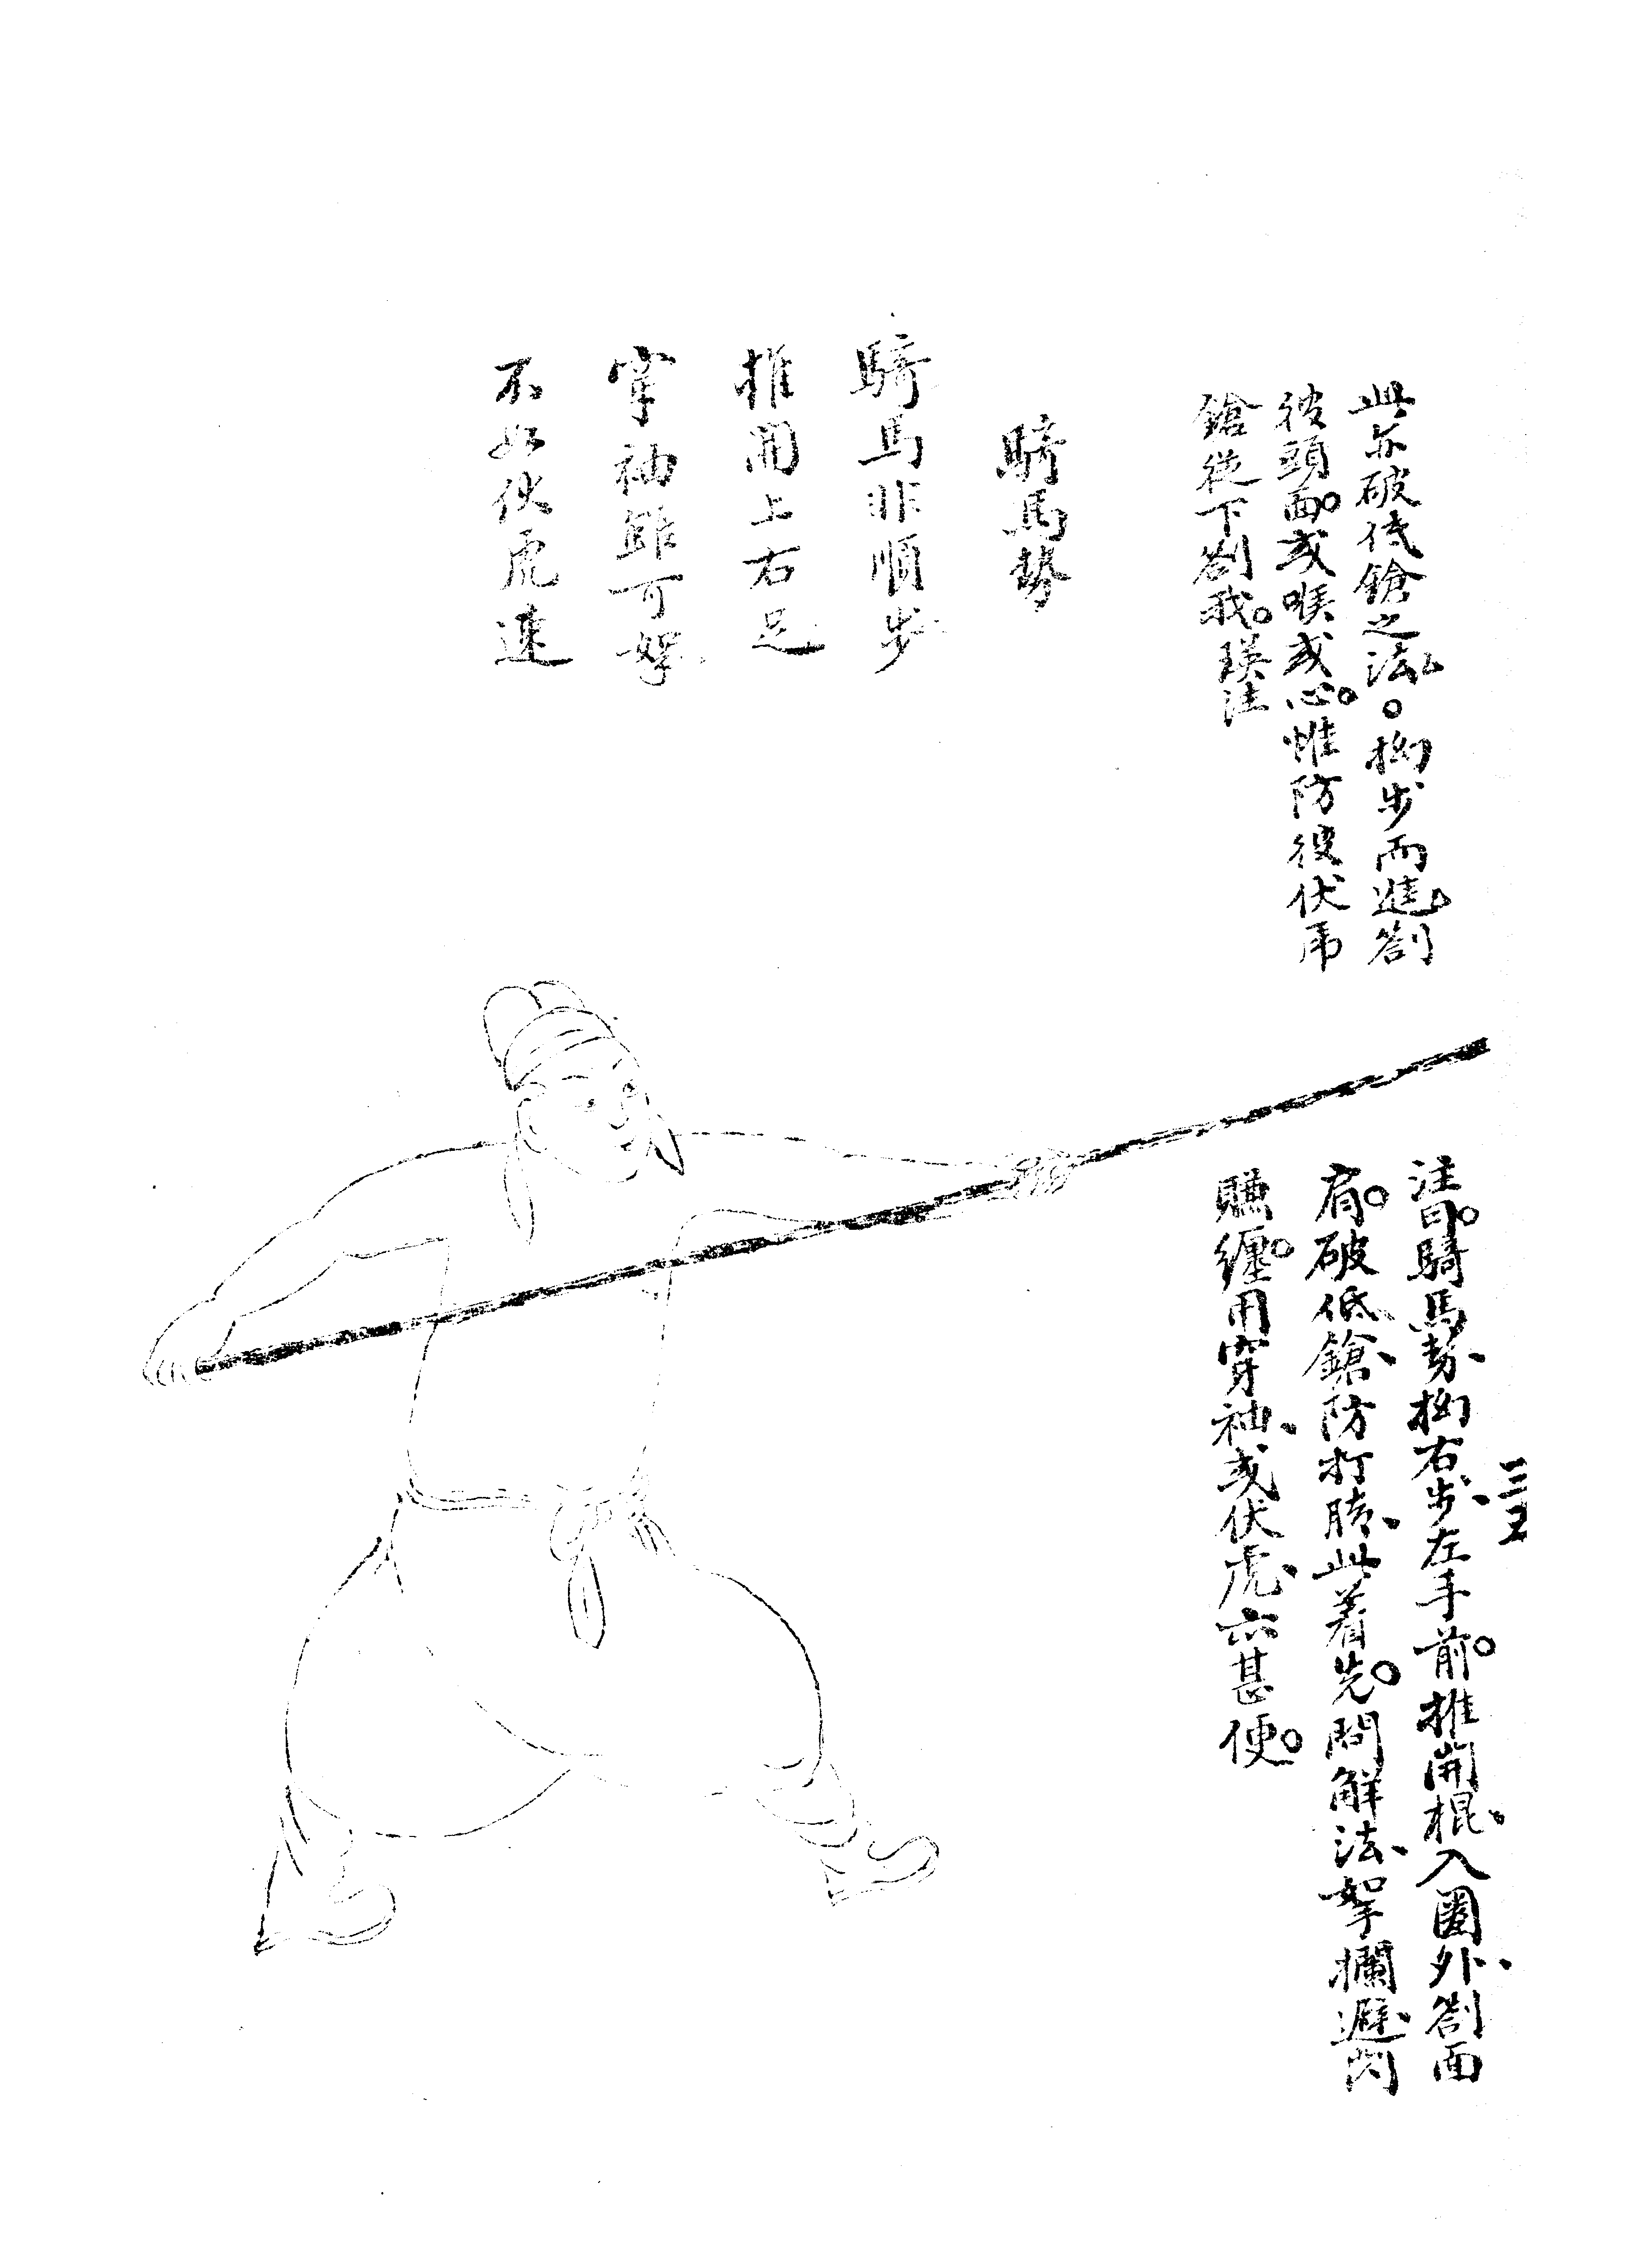 此亦破低鎗之法。拗步而進劄
彼頭面。或喉或心。惟防彼伏虎
鎗從下劄我。瑛注
騎馬勢
騎馬非順步
推開上右足
穿袖雖可拏
不如伏虎速
注曰。騎馬勢、拗右步、左手前。推開棍。入圈外、劄面
肩。破低鎗、防打膝、此着先。問解法、拏攔遞閃
賺纏。用穿袖、或伏虎、亦甚便。
三五